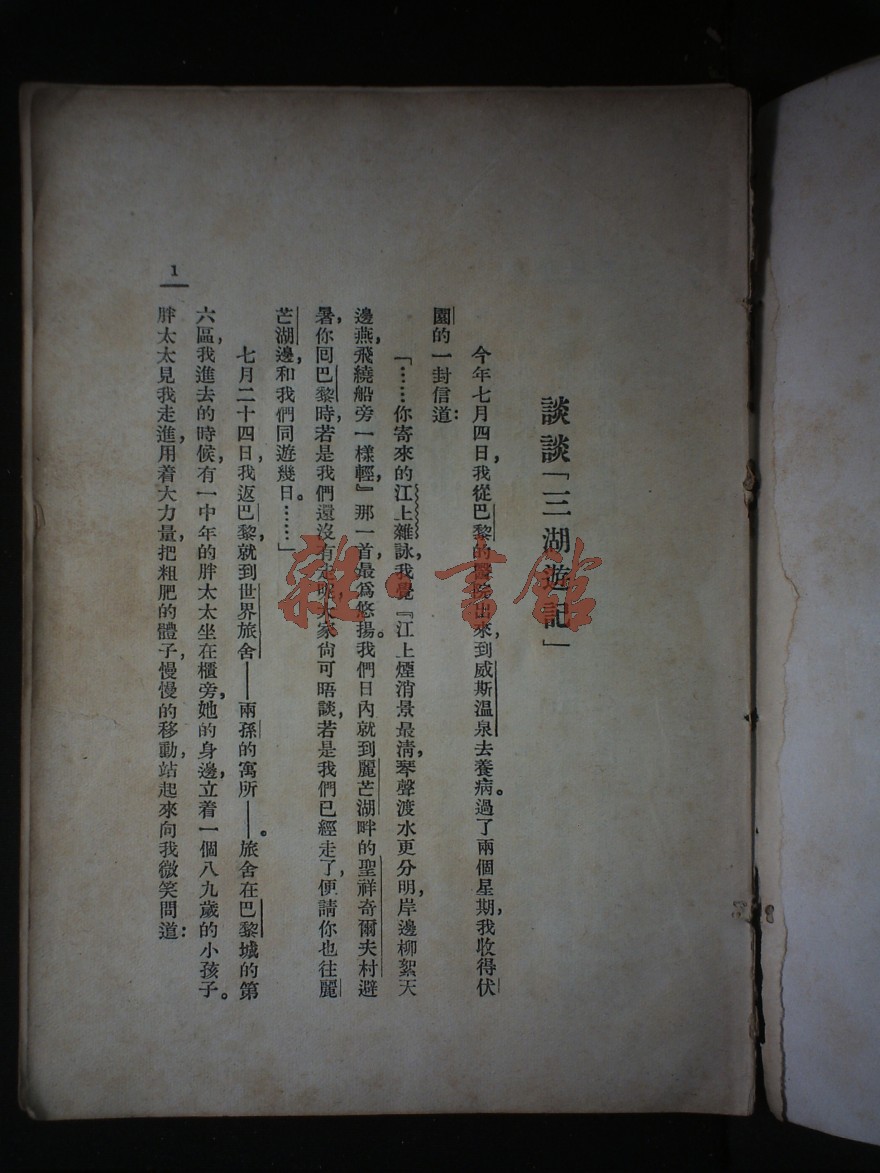 談談「三湖遊記」
今年七月四日，我從巴黎的醫院出來，到威斯溫泉去養病。過了兩個星期，我收得伏
園的一封信道：
「……你寄來的江上雜詠，我覺『江上煙消景最淸，琴聲渡水更分明，岸邊柳絮天
邊燕，飛繞船旁一樣輕』那一首，最爲悠揚。我們日內就到麗芒湖畔的聖祥奇爾夫村避
暑，你回巴黎時若是我們還沒有走呢，大家尙可晤談，若是我們已經走了，便請你也往麗
芒湖邊，和我們同遊幾日。……」
七月二十四日，我返巴黎，就到世界旅舍——兩孫的寓所——。旅舍在巴黎城的第
六區，我進去的時候，有一中年的胖太太坐在櫃旁，她的身邊，立着一個八九歲的小孩子。
胖太太見我走進，用着大力量，把粗肥的體子慢慢的移動，站起來向我微笑問道：
1
雜·書館